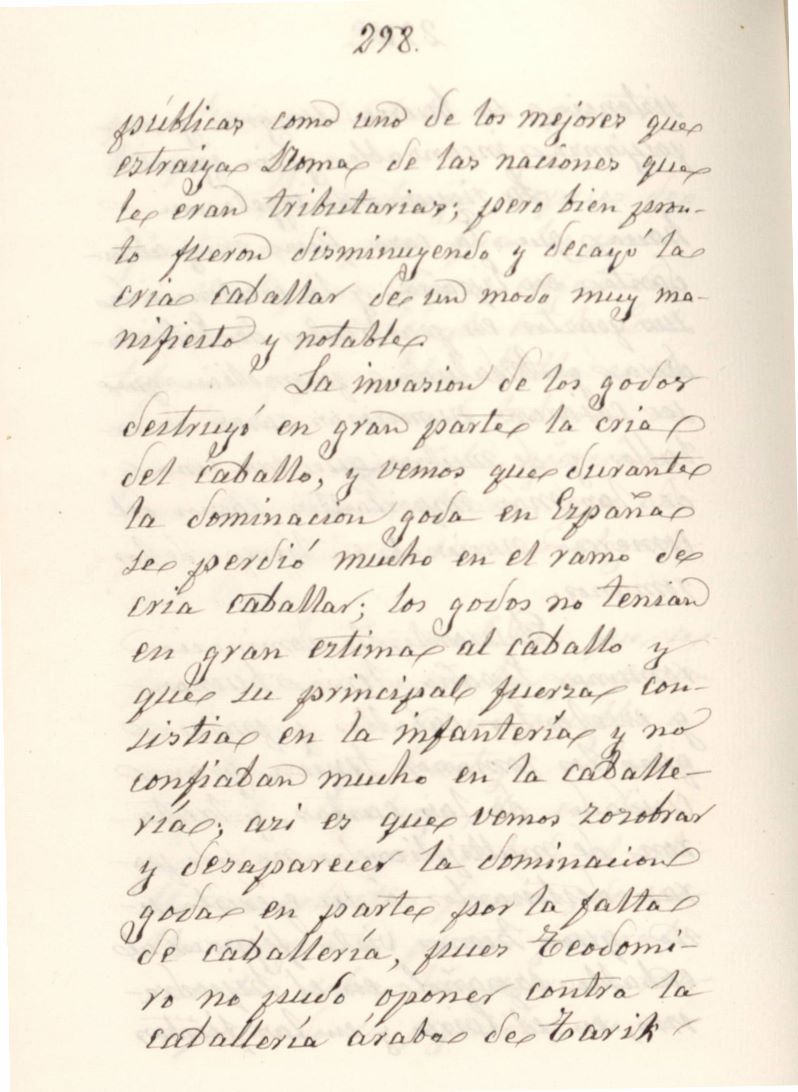 298.
públicas como uno de los mejores que
estraiya Roma de las naciones que
le eran tributarias; pero bien pron-
to fueron disminuyendo y decayó la
cria caballar de un modo muy ma-
nifiesto y notable.
La invasion de los godos
destruyó en gran parte la cria
del caballo, y vemos que durante
la dominacion goda en España
se perdió mucho en el ramo de
cria caballar; los godos no tenian
en gran estima al caballo y
que su principal fuerza con-
sistia en la infantería y no
confiaban mucho en la caballe-
ría; asi es que vemos zozobrar
y desaparecer la dominacion
goda en parte por la falta
de caballería, pues Teodomi-
ro no pudo oponer contra la
caballería árabe de Tarik